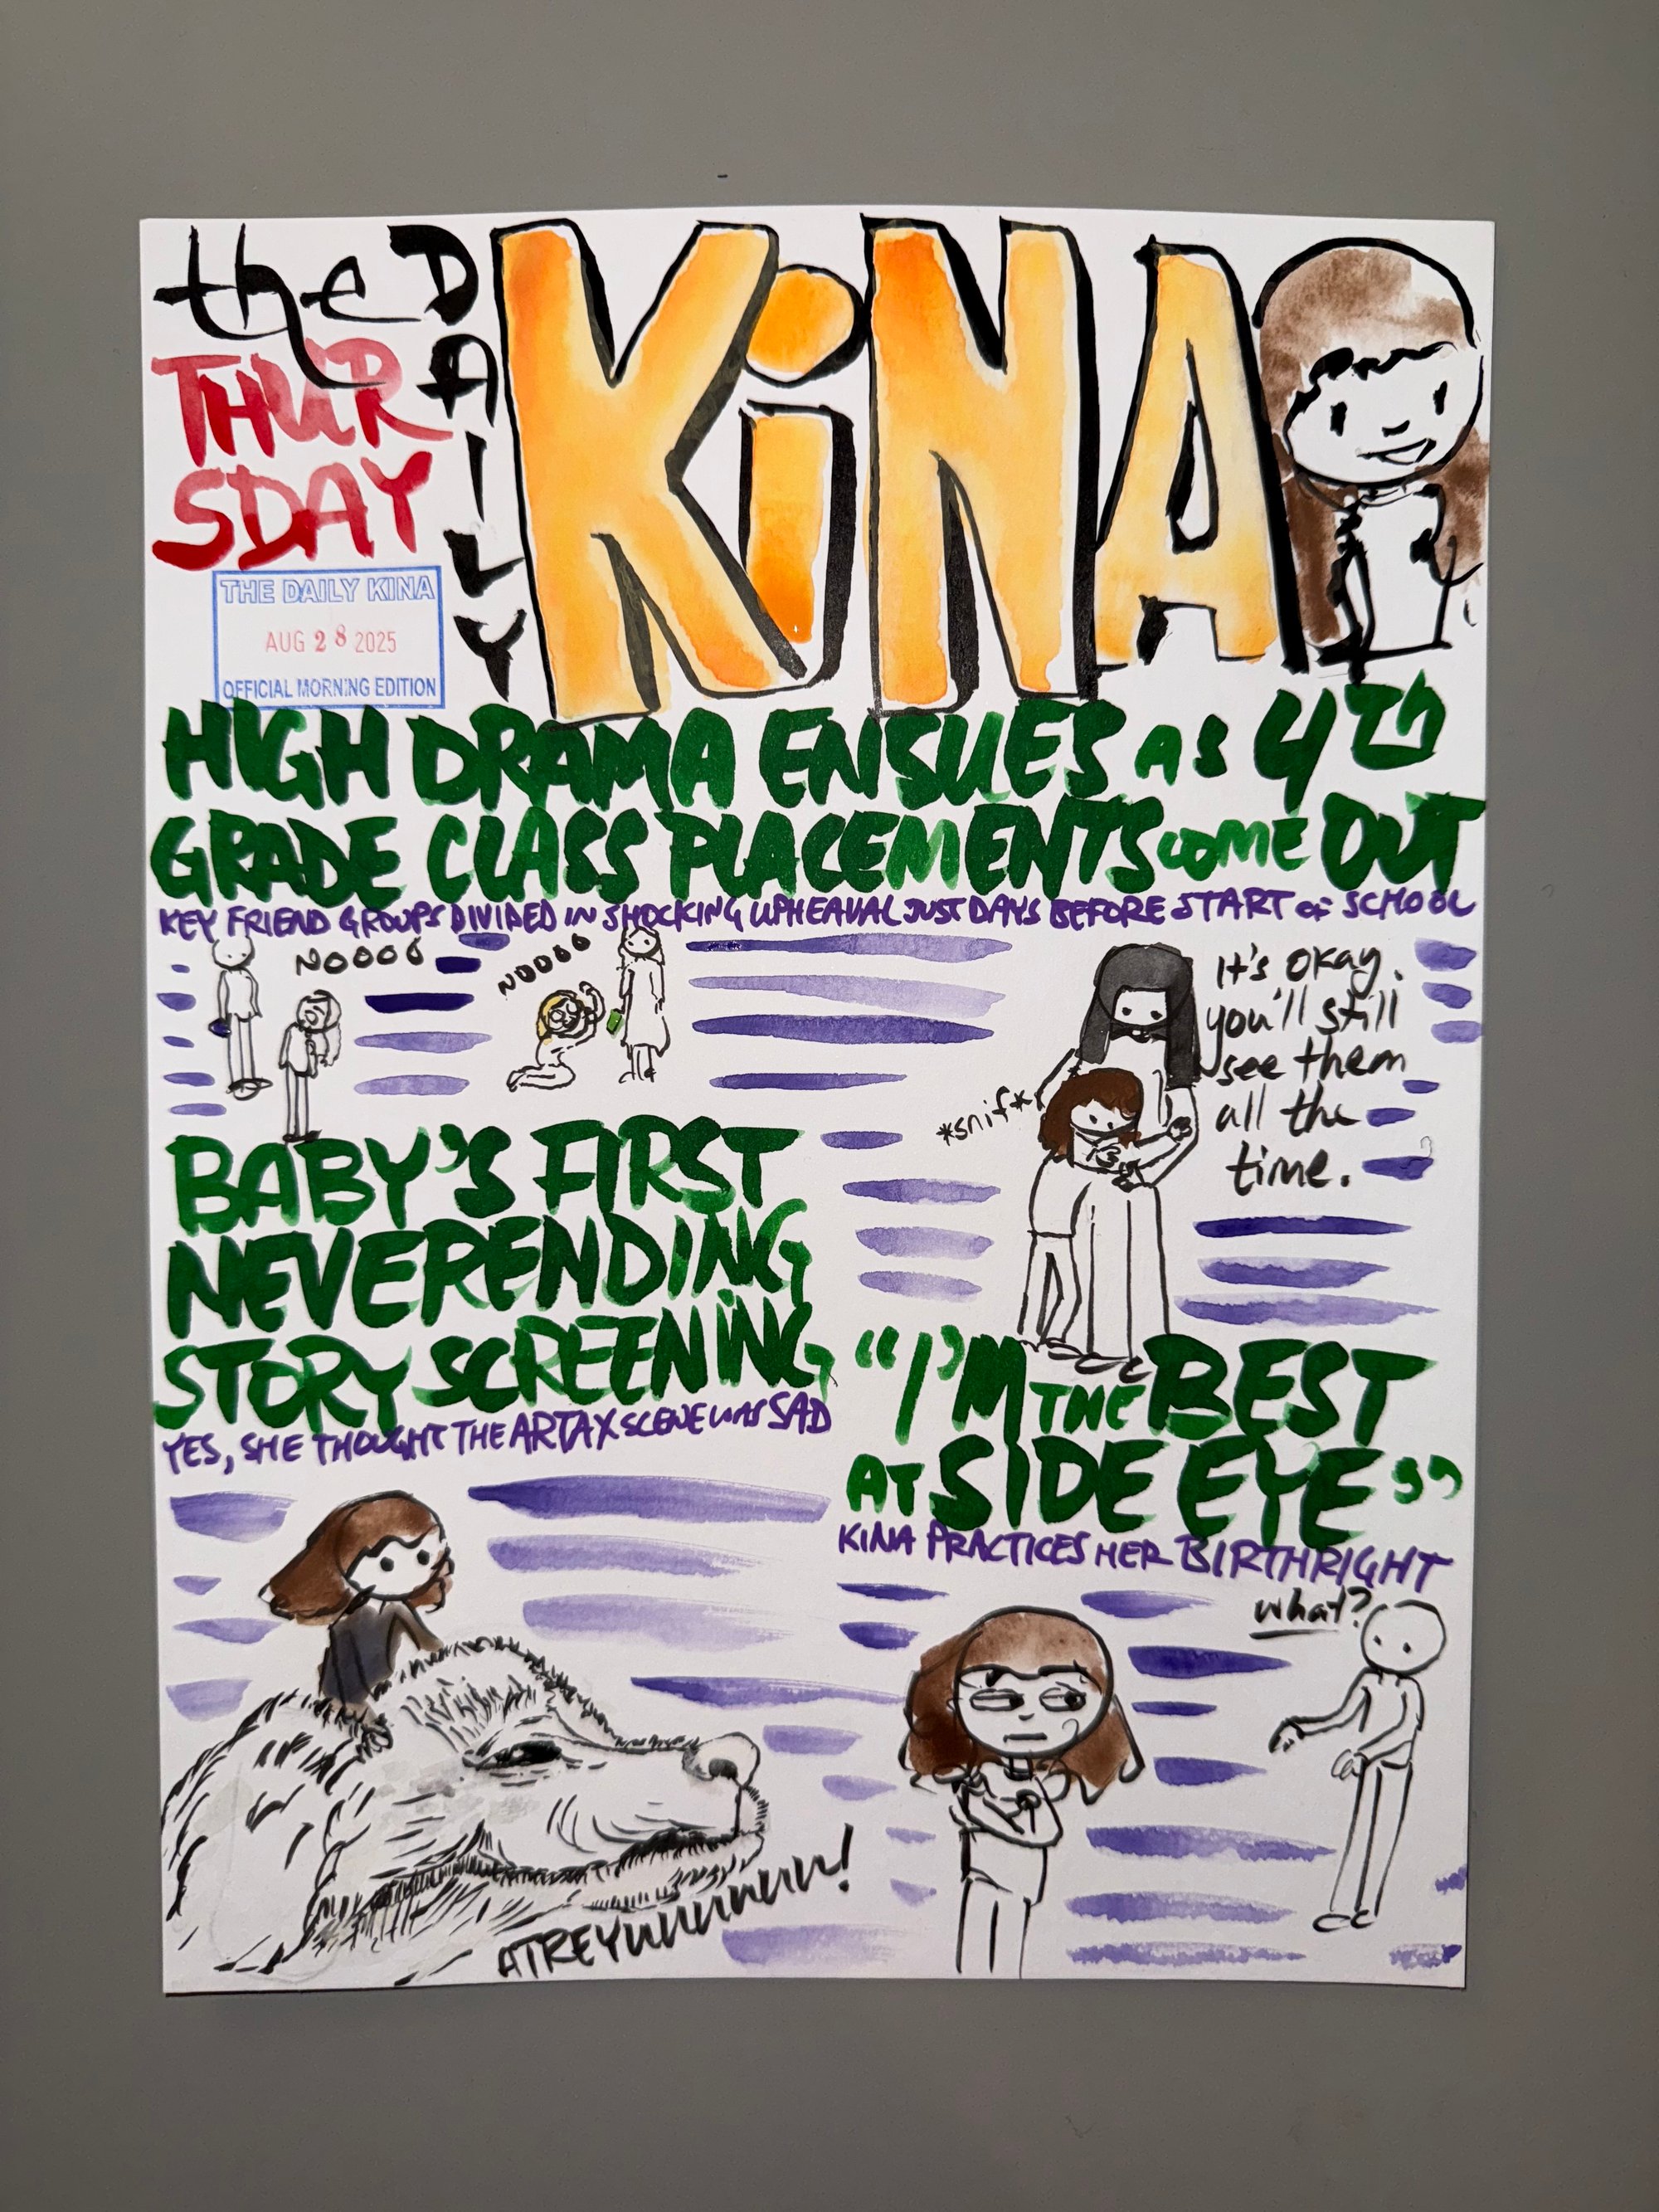 the DAILY KiNA
THUR
SDAY
THE DAILY KINA
AUG 28 2025
OFFICIAL MORNING EDITION
HIGH DRAMA ENSUES AS 4th
GRADE CLASS PLACEMENTS COME OUT
KEY FRIEND GROUPS DIVIDED IN SHOCKING UPHEAVAL JUST DAYS BEFORE START OF SCHOOL
NOOOO
NOOOO
It's okay.
you'll still
see them
all the
time.
*snif*
BABY'S FIRST
NEVERENDING
STORY SCREENING
YES, SHE THOUGHT THE ARTAX SCENE WAS SAD
ATREYUUUUUUU!
"I'M THE BEST
AT SIDE EYE"
KINA PRACTICES HER BIRTHRIGHT
what?